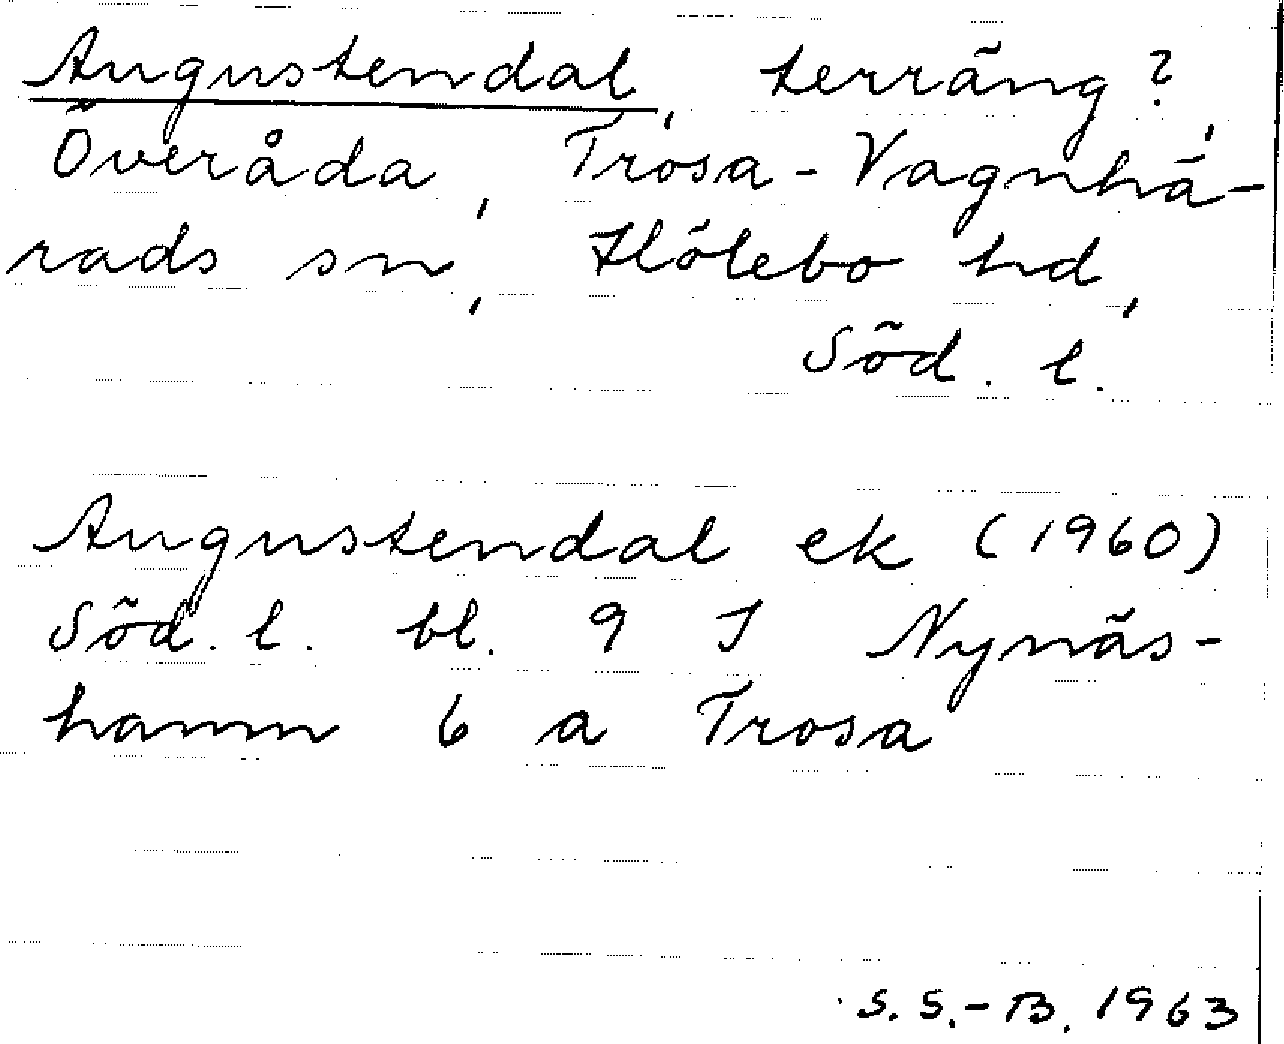 Augustendal, terräng?,
Överåda, Trosa-Vagnhä-
rads sn, Hölebo hd,
Söd. l.
Augustendal ek (1960)
Söd. l. bl. 9 I Nynäs-
hamn 6 a Trosa
S. S.-B. 1963